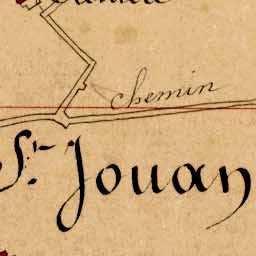 chemin
St. Jouan